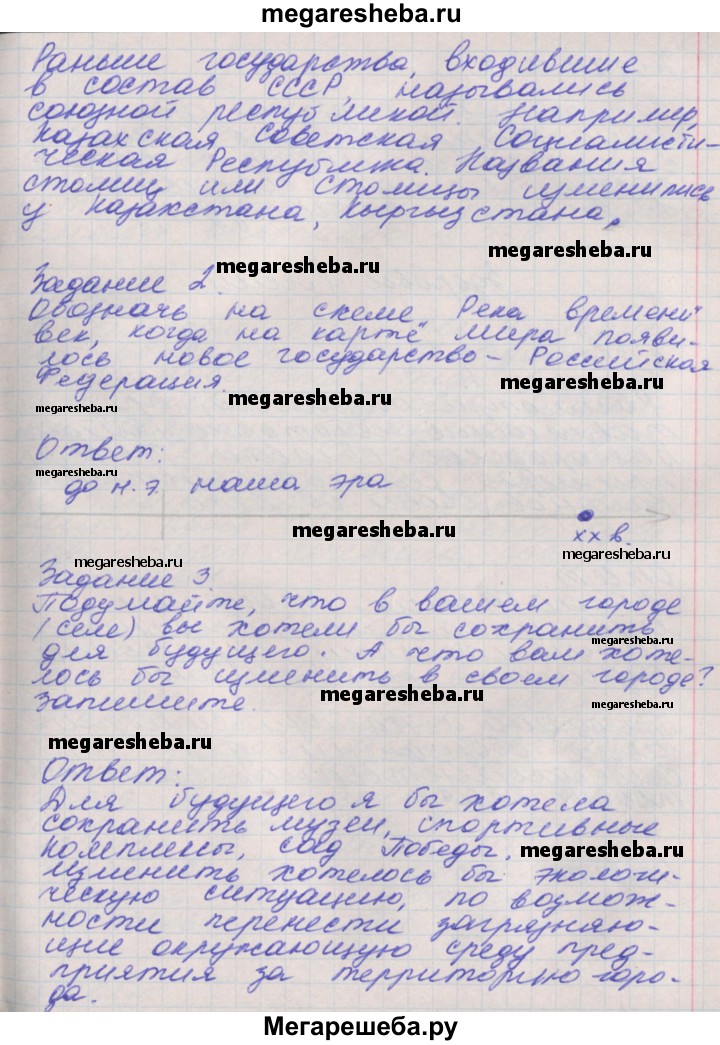 megaresheba.ru
Раньше государства, входившие
в состав СССР, назывались
союзной республикой. Например,
Казахская Советская Социалисти-
ческая Республика. Названия
столиц или столицы изменились
у Казахстана, Кыргызстана.
megaresheba.ru
megaresheba.ru
Задание 2.
Обозначь на схеме „Река времени"
век, когда на карте мира появи-
лось новое государство - Российская
Федерация.
megaresheba.ru
megaresheba.ru
megaresheba.ru
Ответ:
megaresheba.ru
до н.э. наша эра
megaresheba.ru
megaresheba.ru
XX в.
megaresheba.ru
Задание 3.
Подумайте, что в вашем городе
(селе) вы хотели бы сохранить
megaresheba.ru
для будущего. А что вам хоте-
лось бы изменить в своем городе?
запишите.
megaresheba.ru
megaresheba.ru
megaresheba.ru
Ответ:
Для будущего я бы хотела
сохранить музеи, спортивные
комплексы, сад Победы.
megaresheba.ru
изменить хотелось бы экологи-
ческую ситуацию, по возмож-
ности перенести загрязняю-
щие окружающую среду пред-
приятия за территорию горо-
да.
Мегарешеба.ру